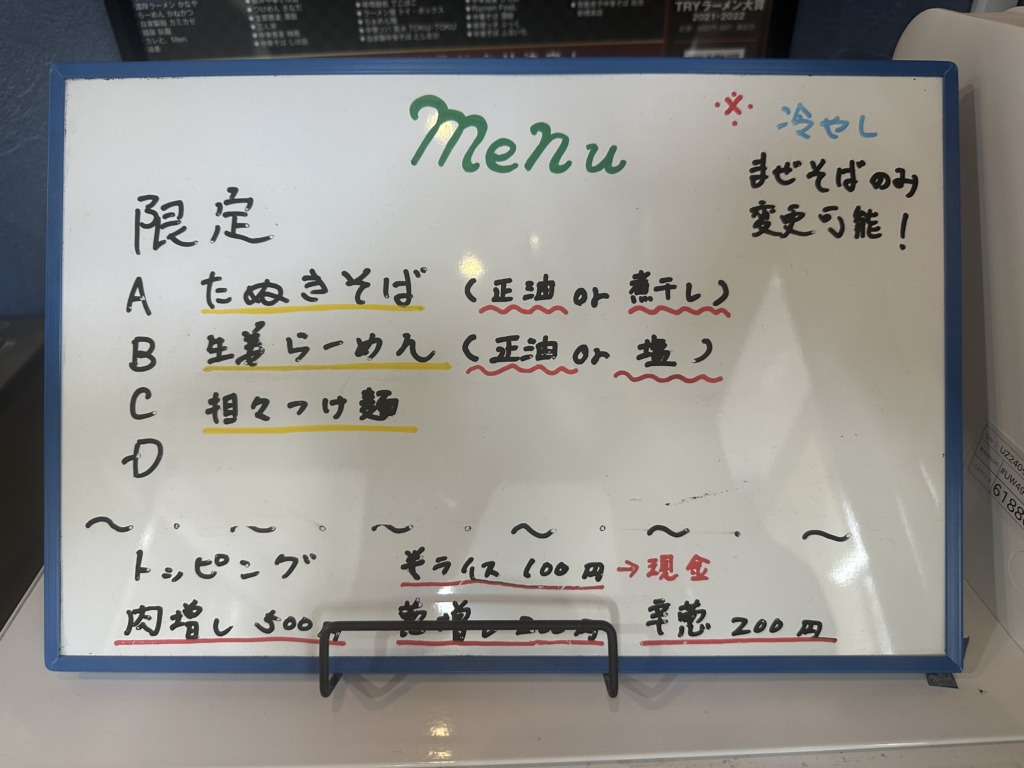 TRYラーメン大賞
2021-2022
Menu
※ 冷やし
まぜそばのみ
変更可能！
限定
A たぬきそば (正油 or 煮干し)
B 生姜らーめん (正油 or 塩)
C 担々つけ麺
D
〜 · 〜 · 〜 · 〜 · 〜 · 〜
トッピング 半ライス 100円 →現金
肉増し 500円 葱増し 200円 辛葱 200円
UZ240
#UW49
6188